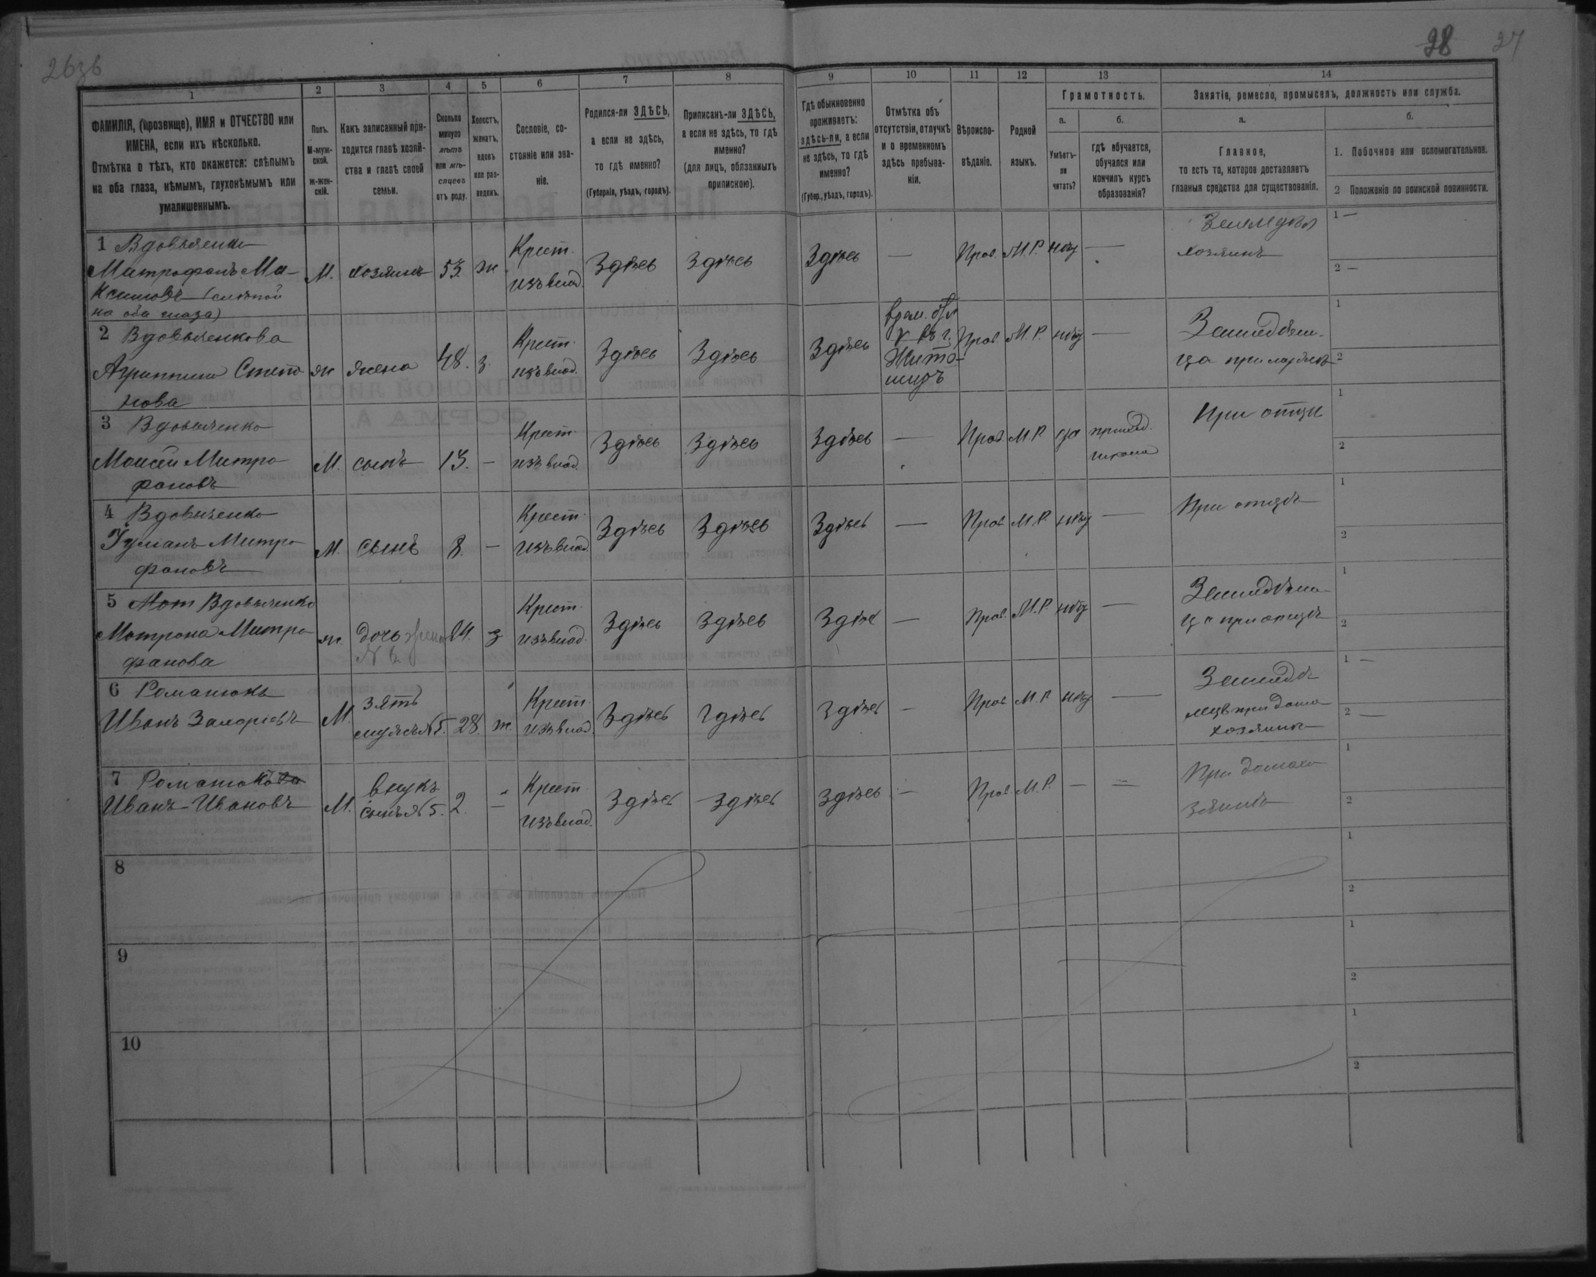 263б
28 27
1
2
3
4
5
6
7
8
9
10
11
12
13
14
ФАМИЛІЯ, (прозвище), ИМЯ и ОТЧЕСТВО или
ИМЕНА, если ихъ нѣсколько.
Отмѣтка о тѣхъ, кто окажется: слѣпымъ
на оба глаза, нѣмымъ, глухонѣмымъ или
умалишеннымъ.
Полъ.
М-муж-
ской.
ж-жен-
скій.
Какъ записанный при-
ходится главѣ хозяй-
ства и главѣ своей
семьи.
Сколько
минуло
лѣтъ
или мѣ-
сяцевъ
отъ роду.
Холостъ,
женатъ,
вдовъ
или раз-
веденъ.
Сословіе, со-
стояніе или зва-
ніе.
Родился-ли ЗДѢСЬ,
а если не здѣсь,
то гдѣ именно?
(Губернія, уѣздъ, городъ).
Приписанъ-ли ЗДѢСЬ,
а если не здѣсь, то гдѣ
именно?
(для лицъ, обязанныхъ
припискою).
Гдѣ обыкновенно
проживаетъ:
здѣсь-ли, а если
не здѣсь, то гдѣ
именно?
(Губер., уѣздъ, городъ).
Отмѣтка объ
отсутствіи, отлучкѣ
и о временномъ
здѣсь пребыва-
ніи.
Вѣроиспо-
вѣданіе.
Родной
языкъ.
Грамотность.
а.
б.
Умѣетъ-
ли
читать?
гдѣ обучается,
обучался или
кончилъ курсъ
образованія?
Занятіе, ремесло, промыселъ, должность или служба.
а.
б.
Главное,
то есть то, которое доставляетъ
главныя средства для существованія.
1. Побочное или вспомогательное.
2 Положеніе по воинской повинности.
1 Вдовиченко
Митрофанъ Ма-
ксимовъ (слѣпой
на оба глаза)
М. хозяинъ 53. ж.
Крест.
изъ влад.
Здѣсь Здѣсь Здѣсь — Прав. М.Р. нѣт —
хозяинъ
1 —
2 —
2 Вдовиченкова
Агрипина Степа
нова
ж жена 48. з.
Крест.
изъ влад.
Здѣсь Здѣсь Здѣсь
въ г.
Жито-
миръ
Прав М.Р. нѣт —
1
2
3 Вдовиченко
Моисей Митро
фановъ
М. сынъ 13. —
Крест.
изъ влад.
Здѣсь Здѣсь Здѣсь — Прав М.Р. да
школа
При отцѣ
1
2
4 Вдовиченко
Митро
фановъ
М. сынъ 8. —
Крест.
изъ влад.
Здѣсь Здѣсь Здѣсь — Прав М.Р. нѣт —
При отцѣ
1
2
5 Вдовиченко
Мотрона Митро
фанова
ж. дочь з.
Крест.
изъ влад.
Здѣсь Здѣсь Здѣсь — Прав. М.Р. нѣт —
при отцѣ
1
2
6 Романюкъ
Иванъ
М.
зять
мужъ №5. 28. ж.
Крест.
изъ влад.
Здѣсь Здѣсь Здѣсь — Прав М.Р. нѣт —
хозяина
1 —
2 —
7 Романюк
Иванъ Ивановъ
М.
внукъ
сынъ №5. 2. —
Крест
изъ влад.
Здѣсь Здѣсь Здѣсь — Прав М.Р. — =
1
2
8
1
2
9
1
2
10
1
2